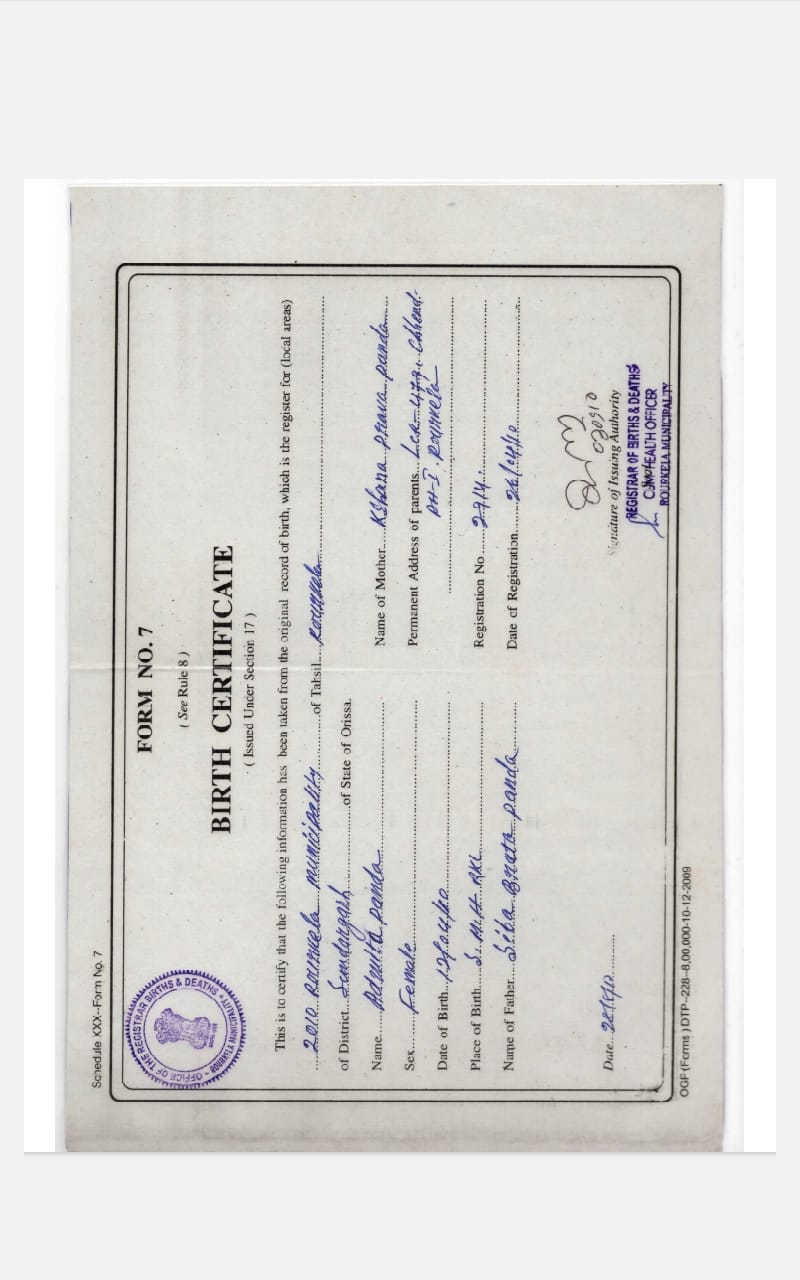 Schedule XXX--Form No. 7
OFFICE OF THE REGISTRAR BIRTHS & DEATHS
ROURKELA MUNICIPALITY
FORM NO. 7
( See Rule 8 )
BIRTH CERTIFICATE
( Issued Under Section 17 )
This is to certify that the following information has been taken from the original record of birth, which is the register for (local areas)
2010 Rourkela municipality of Tahsil Rourkela
of District Sundargarh of State of Orissa.
Name Advita panda
Sex Female
Date of Birth
Place of Birth S. M. H. RKL
Name of Father Siba Brata panda
Name of Mother Kshana prava panda
Permanent Address of parents Chhend.
PH-I. Rourkela
Registration No
Date of Registration
Date
Signature of Issuing Authority
REGISTRAR OF BIRTHS & DEATHS
CUM HEALTH OFFICER
ROURKELA MUNICIPALITY
OGP (Forms) DTP--228--8,00,000-10-12-2009